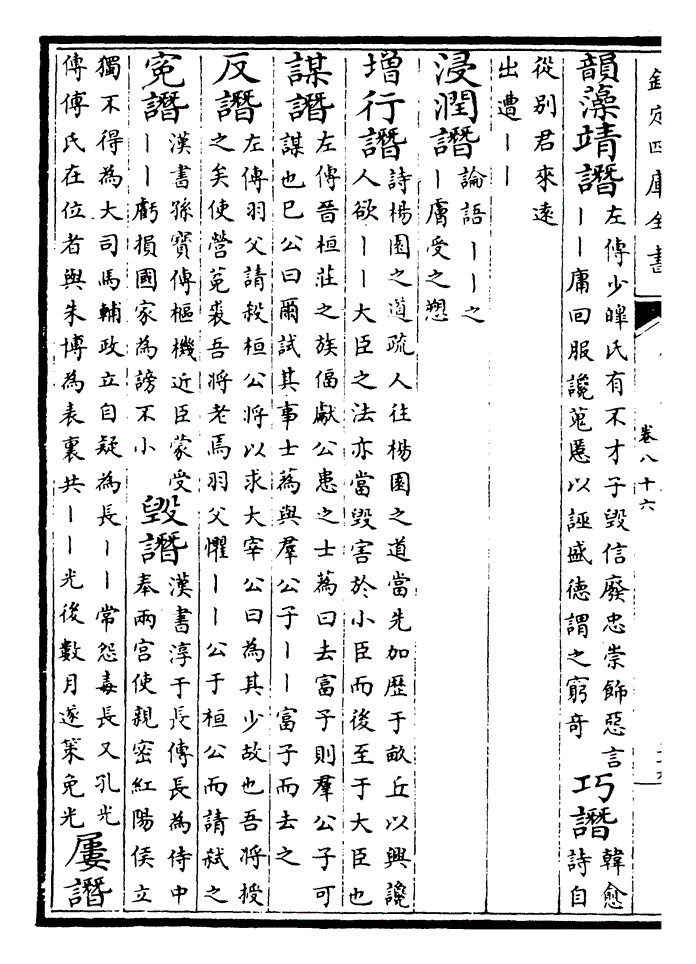 欽定四庫全書 卷八十六
韻藻靖譖 左傳少皥氏有不才子毀信廢忠崇飾惡言
丨丨庸回服讒蒐慝以誣盛徳謂之窮奇
巧譖 韓愈
詩自
從别君來逺
出遭丨丨
浸潤譖 論語丨丨之
丨膚受之愬
增行譖 詩楊園之道疏人往楊園之道當先加歷于畝丘以興讒
人欲丨丨大臣之法亦當毀害於小臣而後至于大臣也
謀譖 左傳晉桓莊之族偪獻公患之士蒍曰去富子則羣公子可
謀也已公曰爾試其事士蒍與羣公子丨丨富子而去之
反譖 左傳羽父請殺桓公將以求大宰公曰為其少故也吾將授
之矣使營菟裘吾將老焉羽父懼丨丨公于桓公而請弒之
寃譖 漢書孫寳傳樞機近臣蒙受
丨丨虧損國家為謗不小
毀譖 漢書淳于長傳長為侍中
奉兩宮使親密紅陽侯立
獨不得為大司馬輔政立自疑為長丨丨常怨毒長又孔光
傳傅氏在位者與朱博為表裏共丨丨光後數月遂策免光
屢譖